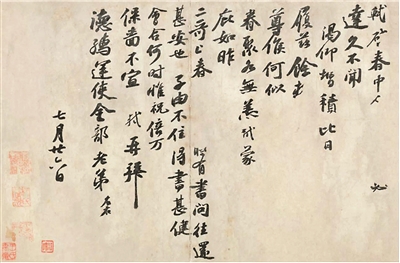 軾啓春中人必
達久不聞
渴仰增積比日
履茲餘
尊候何似
眷聚各無恙軾蒙
庇如昨
二哥上春時有書問往還
甚安也子由不住得書甚健
會合何時惟祝倍萬
保嗇不宣軾再拜
德孺運使金部老弟左右
七月廿六日